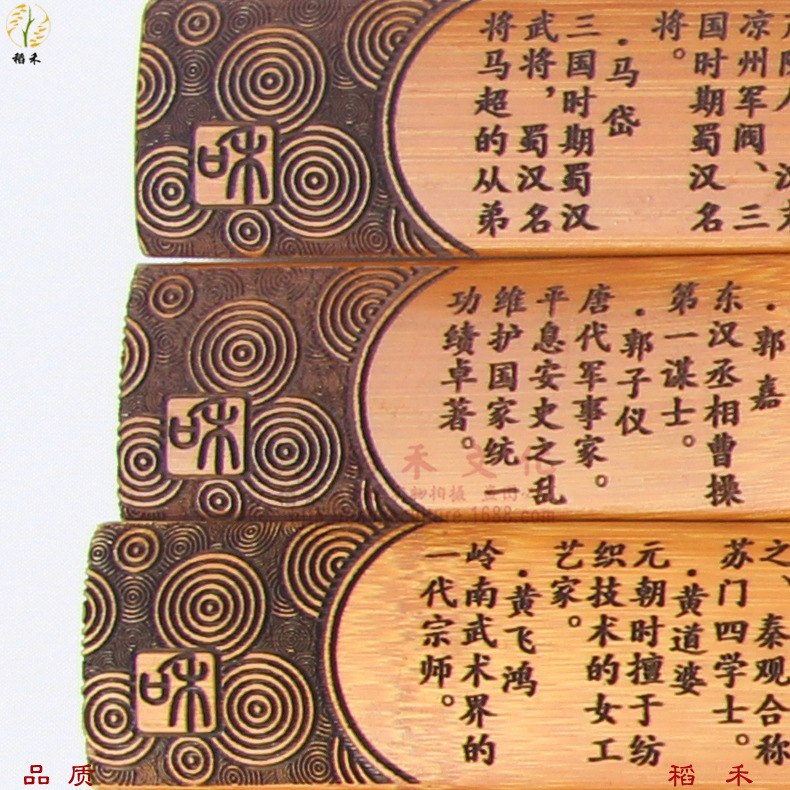 稻禾
凉州军阀、三
国时期蜀汉名
将。
·马岱
三国时期蜀汉
武将，蜀汉名
将马超的从弟
和
·郭嘉
东汉丞相曹操
第一谋士。
·郭子仪
唐代军事家。
平息安史之乱
维护国家统
功绩卓著。
和
禾文化
物拍摄
.1688.com
之、秦观合称
苏门四学士。
·黄道婆
元朝时擅于纺
织技术的女工
艺家。
·黄飞鸿
岭南武术界的
一代宗师。
和
品质
稻禾